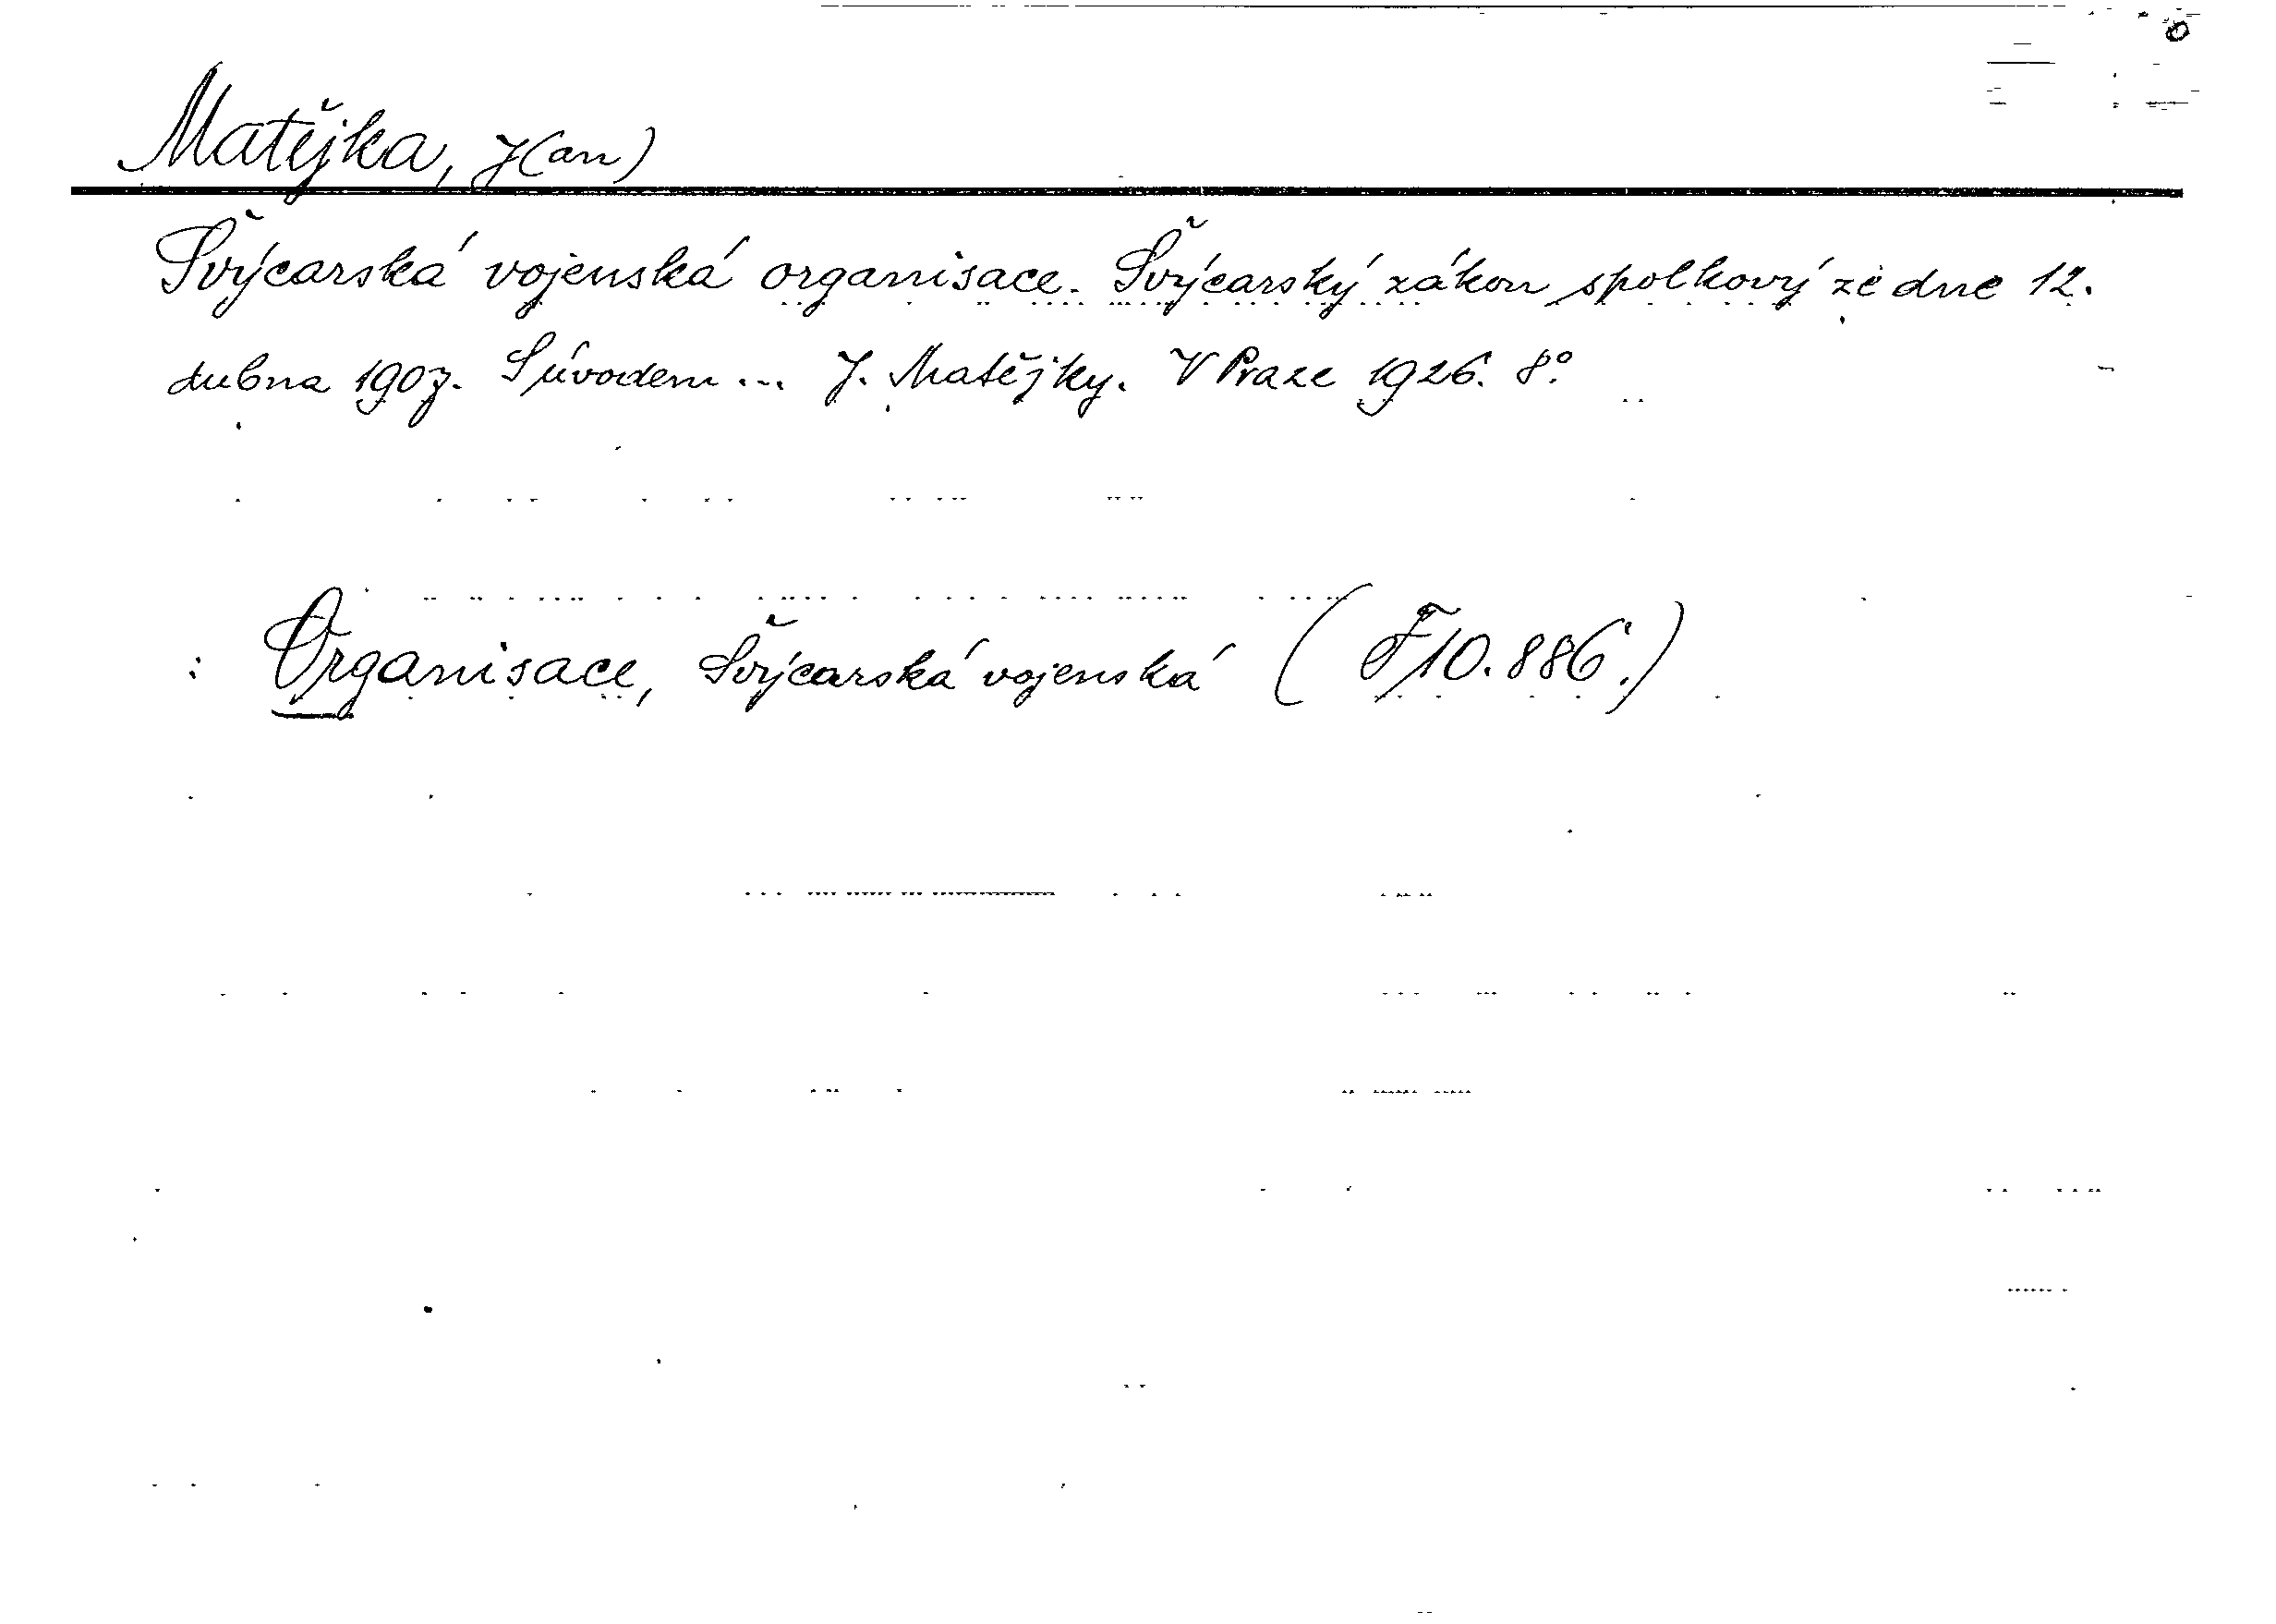 Matějka, J(an)
Švýcarská vojenská organisace. Švýcarský zákon spolkový ze dne 12.
dubna 1907. S úvodem ... J. Matějky. V Praze 1926. 8°.
: Organisace, Švýcarská vojenská ( F 10.886.)